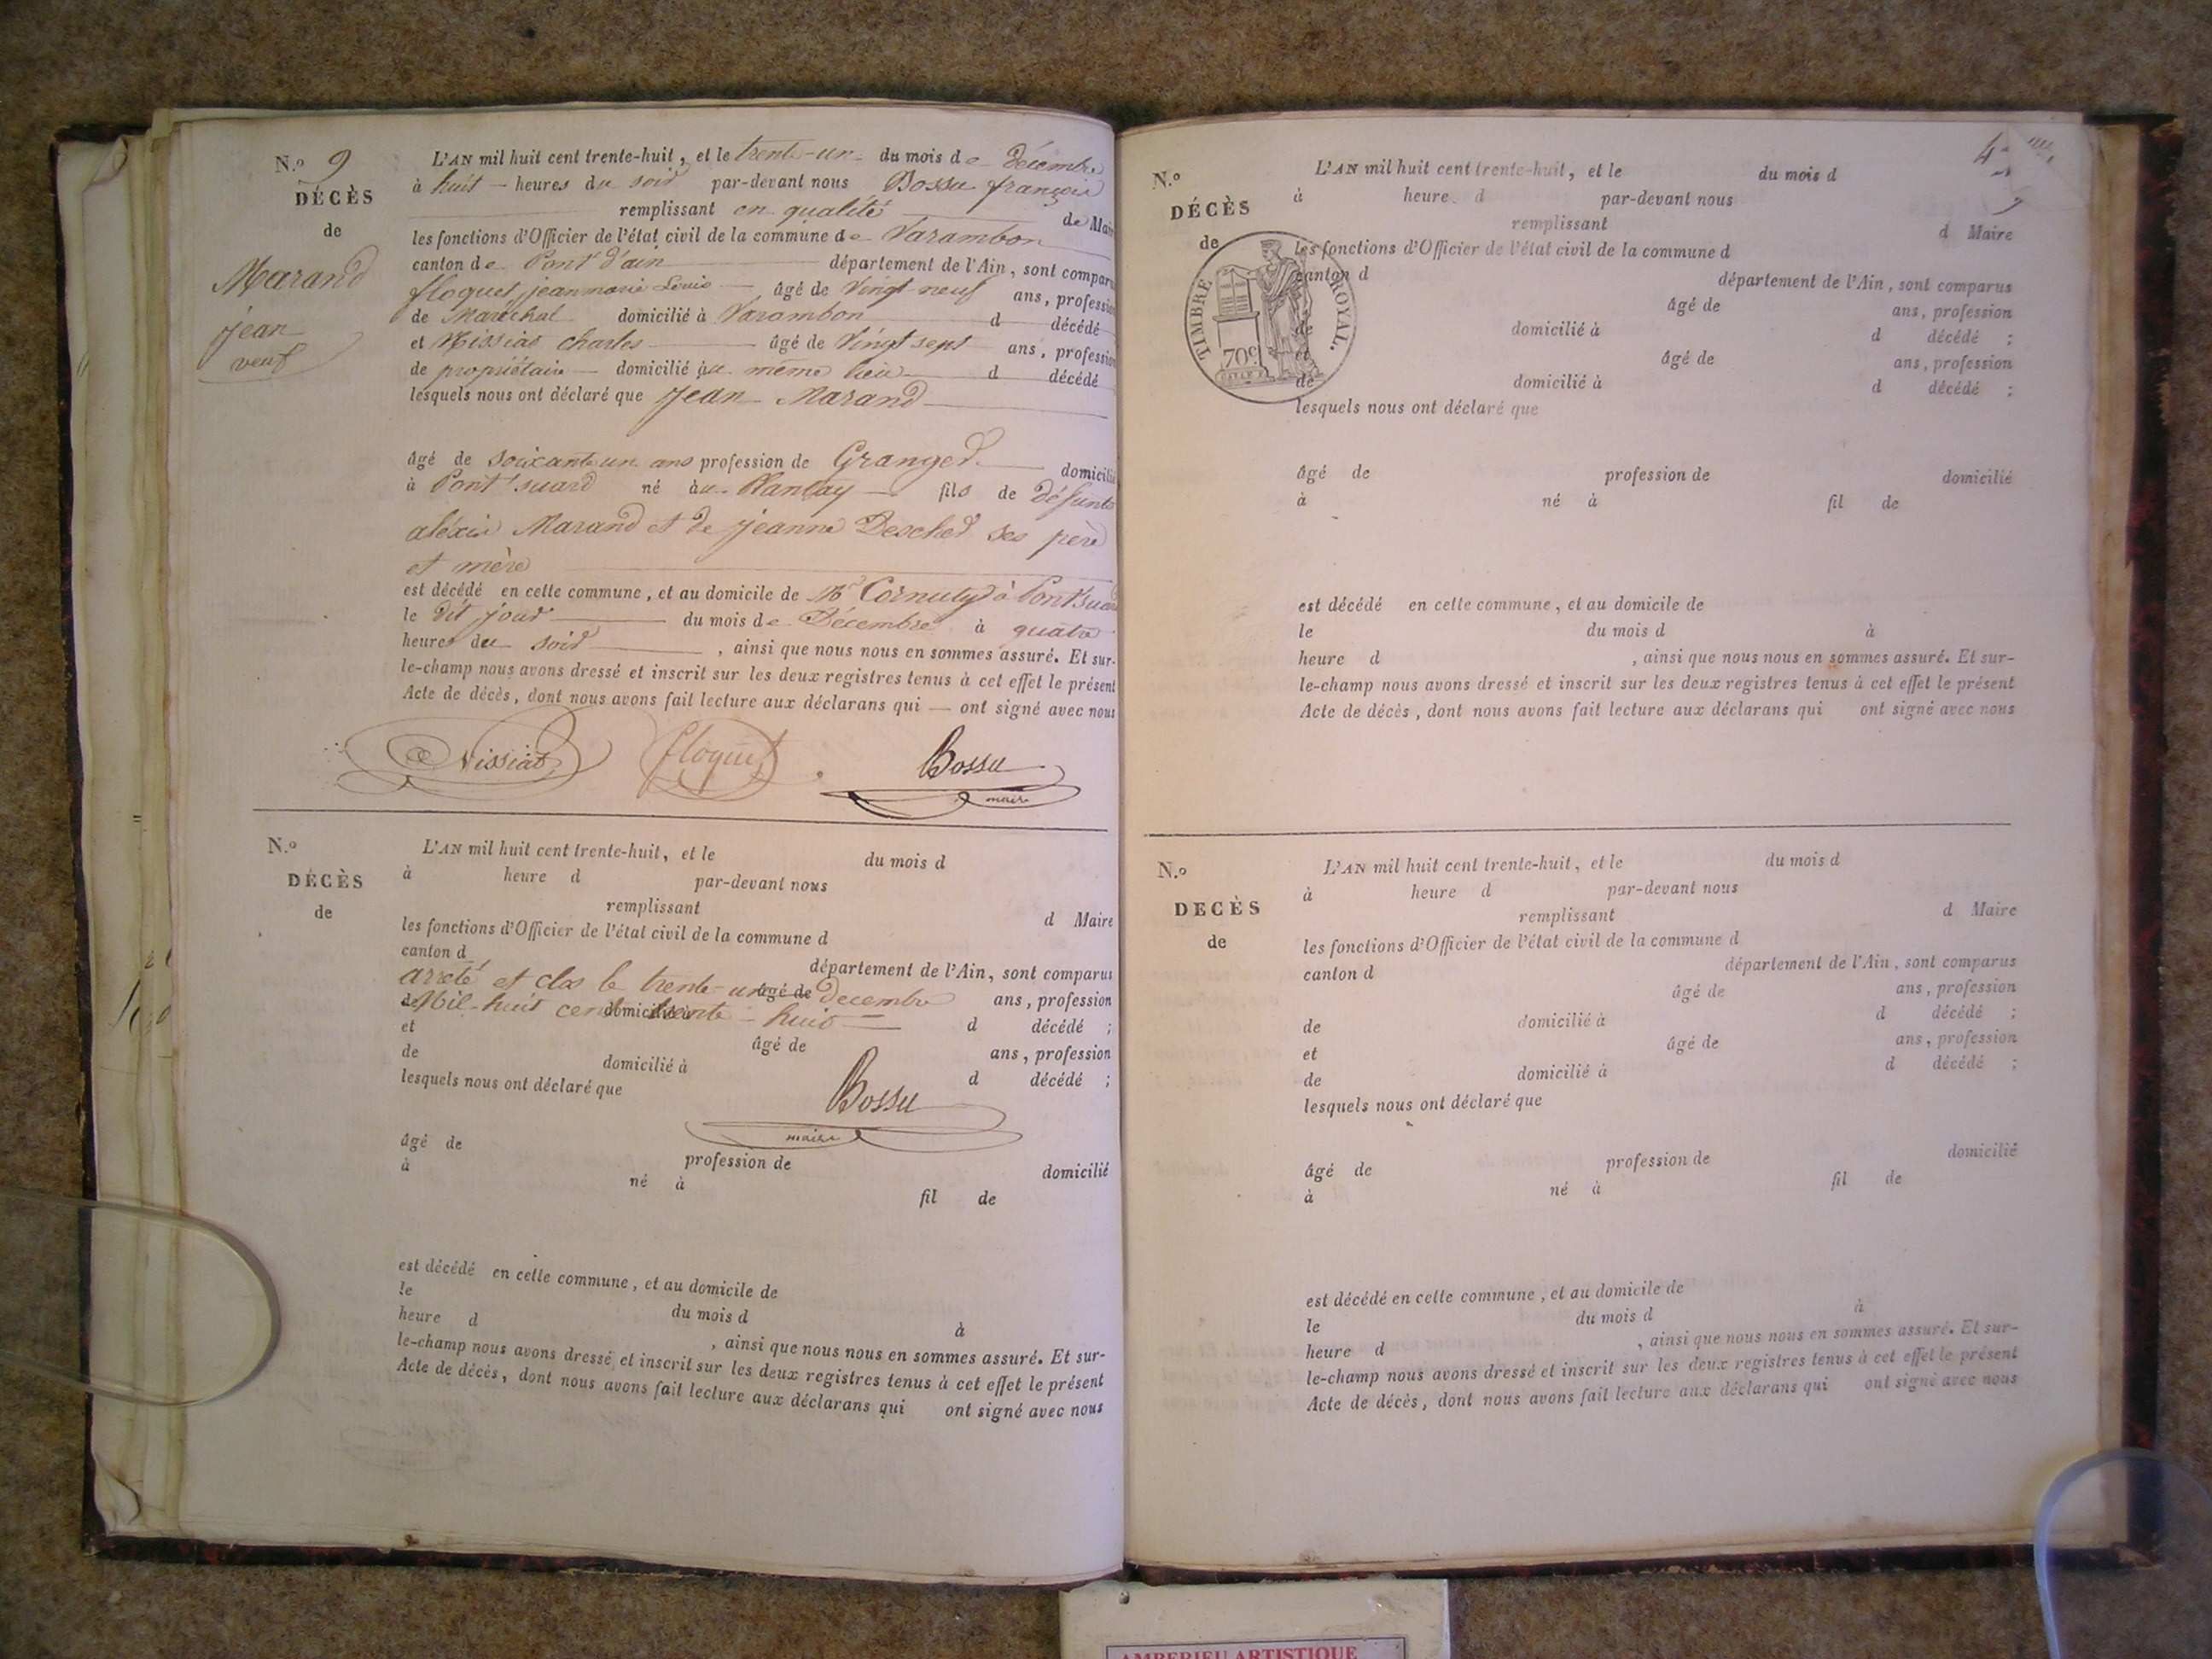 N.º 9
DÉCÈS
de
Marand
jean
veuf
L'AN mil huit cent trente-huit, et le trente-un du mois de décembre
à huit heures du soir par-devant nous Bossu françois
remplissant en qualité de Maire
les fonctions d'Officier de l'état civil de la commune de Varambon
canton de Pont d'ain département de l'Ain, sont comparus
floquet jean marie Louis âgé de Vingt neuf ans, profession
de Maréchal domicilié à Varambon d décédé
et Nissiat charles âgé de Vingt sept ans, profession
de propriétaire domicilié au même lieu d décédé
lesquels nous ont déclaré que jean Marand
âgé de soixante un ans profession de Granger domicilié
à Pont suard né à fils de défunts
aléxis Marand et de jeanne ses père
et mère
est décédé en cette commune, et au domicile de Mr Cornuty à Pont suard
le dit jour du mois de Décembre à quatre
heures du soir, ainsi que nous nous en sommes assuré. Et sur-
le-champ nous avons dressé et inscrit sur les deux registres tenus à cet effet le présent
Acte de décès, dont nous avons fait lecture aux déclarans qui — ont signé avec nous
Nissiat floquet Bossu
maire
N.º
DÉCÈS
de
L'AN mil huit cent trente-huit, et le du mois d
à heure d par-devant nous
remplissant d Maire
les fonctions d'Officier de l'état civil de la commune d
canton d département de l'Ain, sont comparus
arreté et clos le trente-un âgé de decembre ans, profession
de Mil-huit cent domicilié à trente-huit d décédé ;
et âgé de ans, profession
de domicilié à d décédé ;
lesquels nous ont déclaré que
Bossu
maire
âgé de profession de domicilié
à né à fil de
est décédé en cette commune, et au domicile de
le du mois d à
heure d , ainsi que nous nous en sommes assuré. Et sur-
le-champ nous avons dressé et inscrit sur les deux registres tenus à cet effet le présent
Acte de décès, dont nous avons fait lecture aux déclarans qui ont signé avec nous
4
N.º
DÉCÈS
de
TIMBRE ROYAL.
70c
L'AN mil huit cent trente-huit, et le du mois d
à heure d par-devant nous
remplissant d Maire
les fonctions d'Officier de l'état civil de la commune d
canton d département de l'Ain, sont comparus
âgé de ans, profession
de domicilié à d décédé ;
et âgé de ans, profession
de domicilié à d décédé ;
lesquels nous ont déclaré que
âgé de profession de domicilié
à né à fil de
est décédé en cette commune, et au domicile de
le du mois d à
heure d , ainsi que nous nous en sommes assuré. Et sur-
le-champ nous avons dressé et inscrit sur les deux registres tenus à cet effet le présent
Acte de décès, dont nous avons fait lecture aux déclarans qui ont signé avec nous
N.º
DECÈS
de
L'AN mil huit cent trente-huit, et le du mois d
à heure d par-devant nous
remplissant d Maire
les fonctions d'Officier de l'état civil de la commune d
canton d département de l'Ain, sont comparus
âgé de ans, profession
de domicilié à d décédé ;
et âgé de ans, profession
de domicilié à d décédé ;
lesquels nous ont déclaré que
âgé de profession de domicilié
à né à fil de
est décédé en cette commune, et au domicile de
le du mois d à
heure d , ainsi que nous nous en sommes assuré. Et sur-
le-champ nous avons dressé et inscrit sur les deux registres tenus à cet effet le présent
Acte de décès, dont nous avons fait lecture aux déclarans qui ont signé avec nous
AMBERIEU ARTISTIQUE